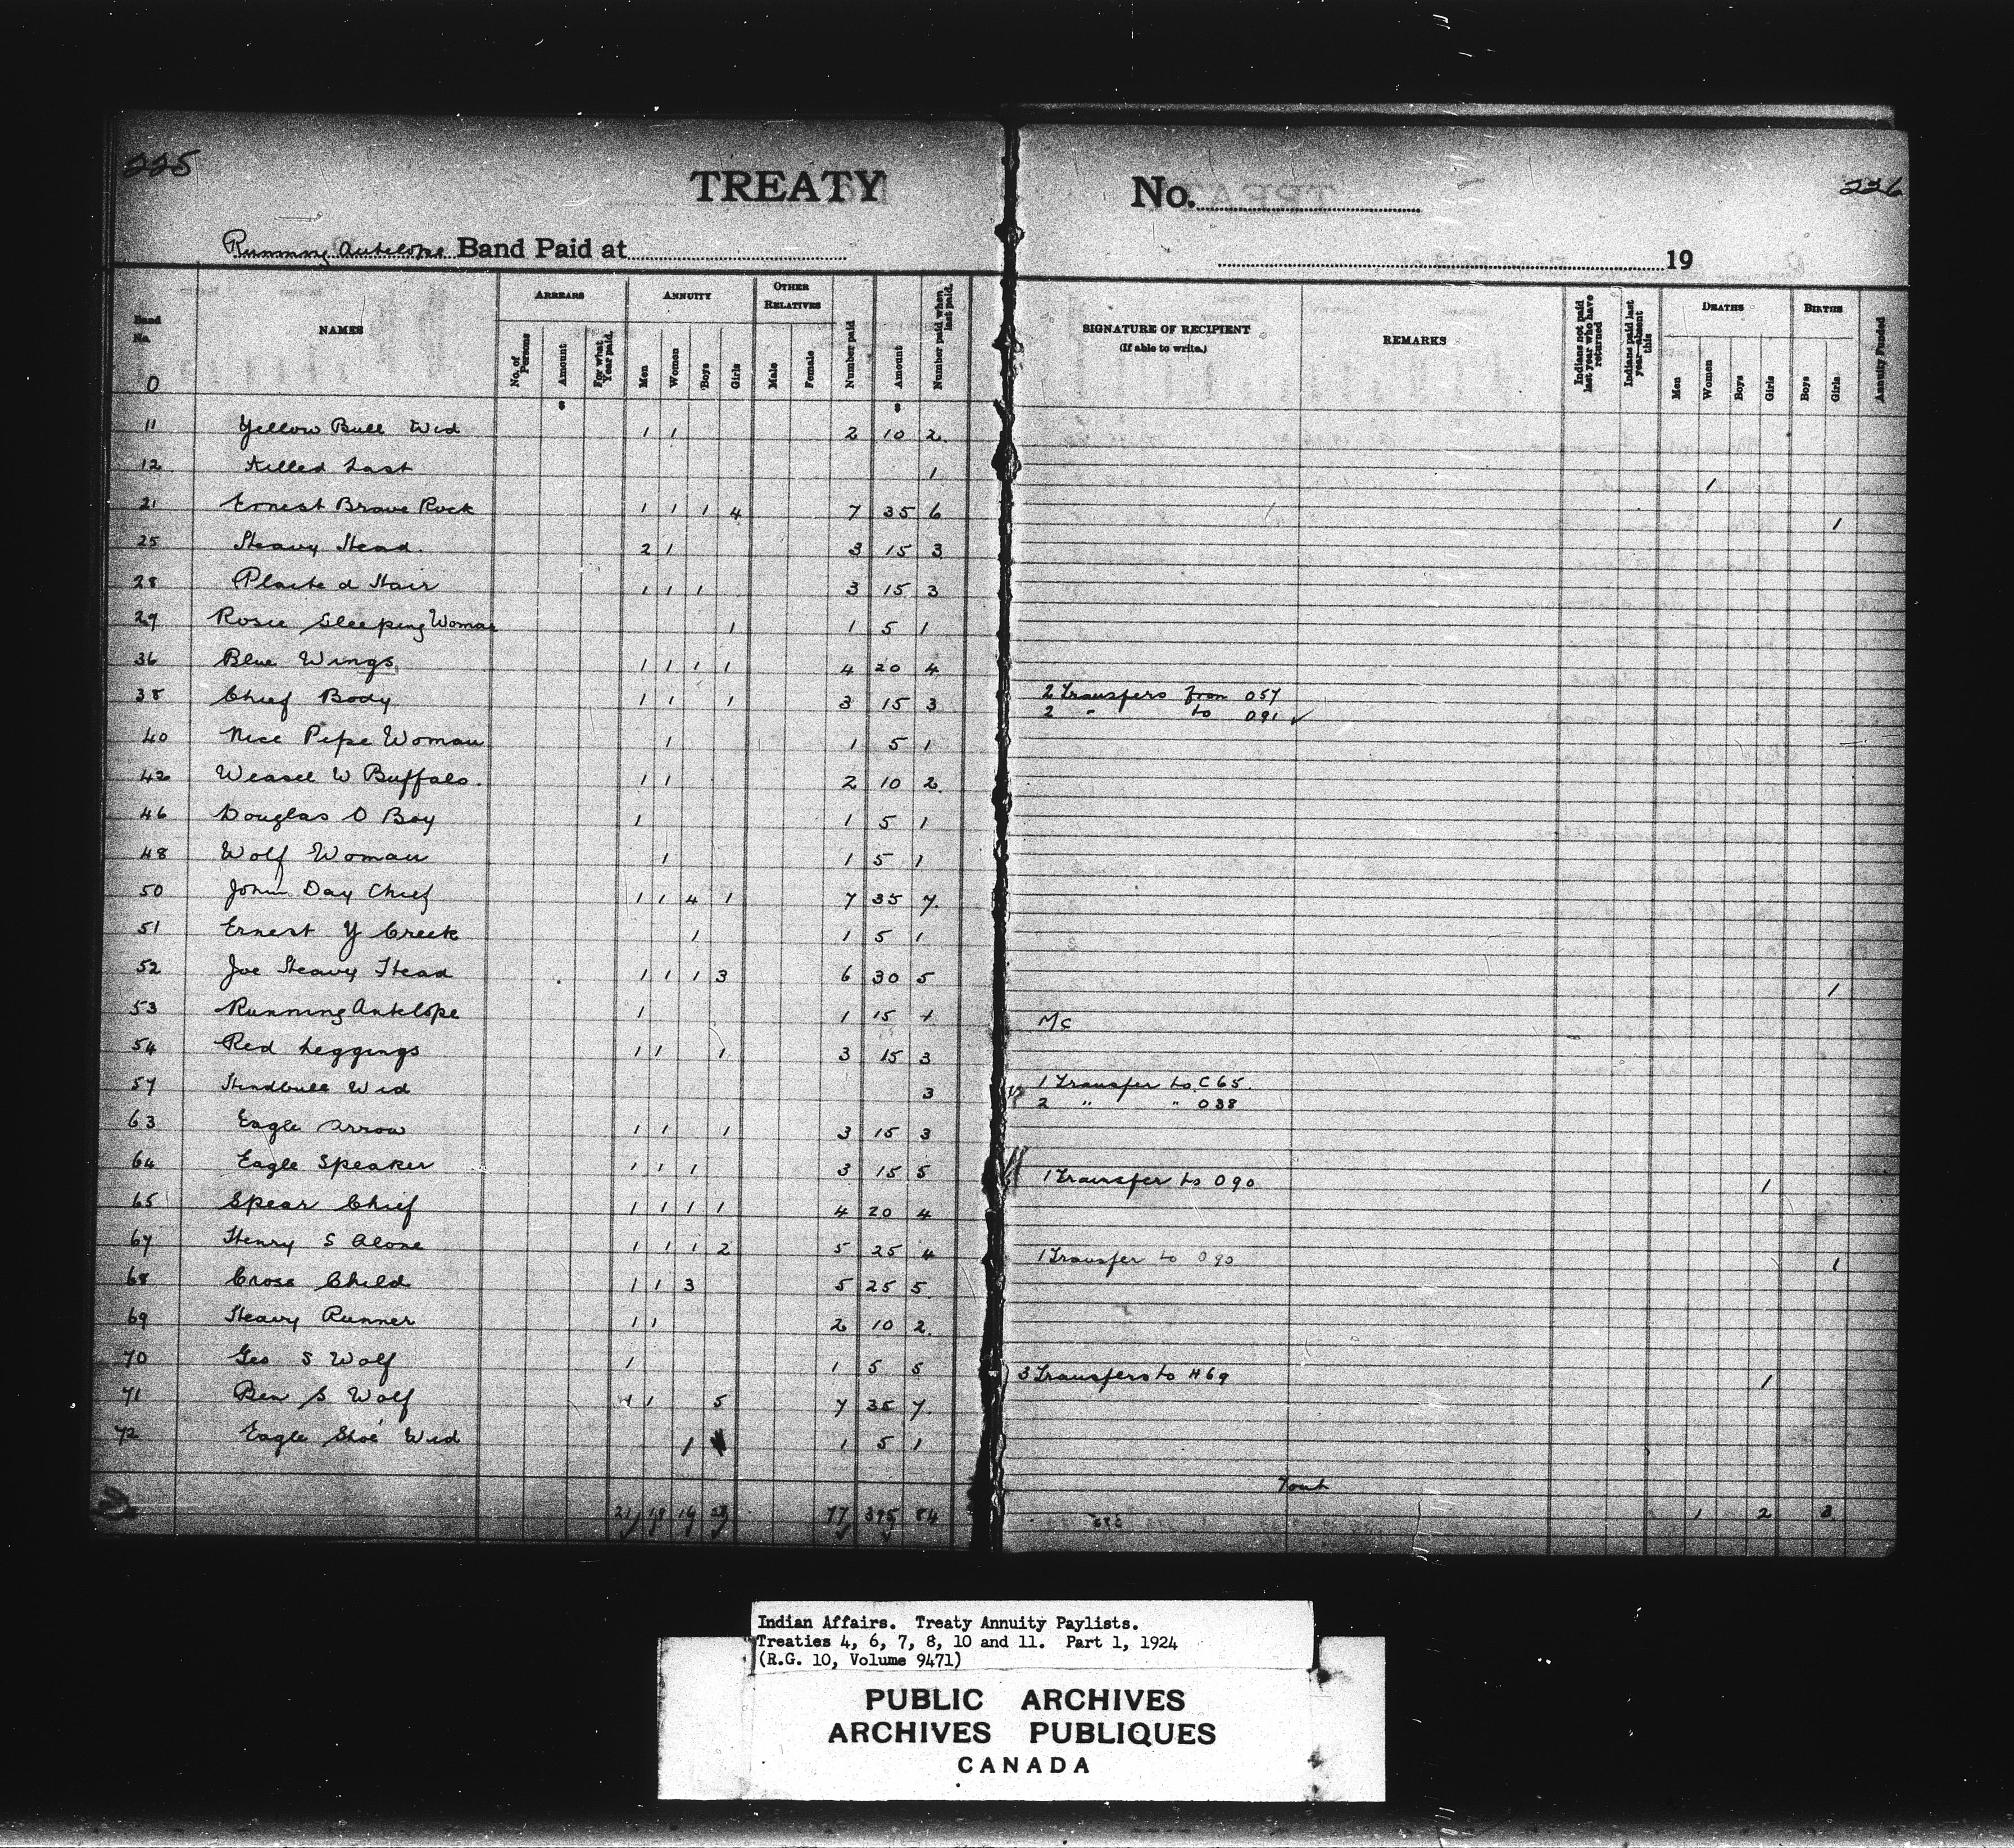 225
TREATY
No.
226
Running Antelope Band Paid at
19
Band No.
NAMES
ARREARS
ANNUITY
OTHER RELATIVES
Number paid
Amount
Number paid when last paid.
SIGNATURE OF RECIPIENT
(If able to write.)
REMARKS
Indians not paid last year who have returned
Indians paid last year—absent this
DEATHS
BIRTHS
Annuity Funded
No. of Persons
Amount
For what Year paid.
Men
Women
Boys
Girls
Male
Female
Men
Women
Boys
Girls
Boys
Girls
O
$ $
11 Yellow Bull Wid 1 1 2 10 2
12 Killed Last 1 1
21 Ernest Brave Rock 1 1 1 4 7 35 6 1
25 Heavy Head 2 1 3 15 3
28 Plaited Hair 1 1 1 3 15 3
29 Rosie Sleeping Woman 1 1 5 1
36 Blue Wings 1 1 1 1 4 20 4
38 Chief Body 1 1 1 3 15 3 2 Transfers from 057
2 " to 091 ✓
40 Nice Pipe Woman 1 1 5 1
42 Weasel W Buffalo. 1 1 2 10 2
46 Douglas O Boy 1 1 5 1
48 Wolf Woman 1 1 5 1
50 John Day Chief 1 1 4 1 7 35 7
51 Ernest Y Creek 1 1 5 1
52 Joe Heavy Head 1 1 1 3 6 30 5 1
53 Running Antelope 1 1 15 1 Mc
54 Red Leggings 1 1 1 3 15 3
57 Hindbull Wid 3 1 Transfer to C65.
2 " " 038
63 Eagle Arrow 1 1 1 3 15 3
64 Eagle Speaker 1 1 1 3 15 5 1 Transfer to 090 1
65 Spear Chief 1 1 1 1 4 20 4
67 Henry S Alone 1 1 1 2 5 25 4 1 Transfer to 090 1
68 Cross Child 1 1 3 5 25 5
69 Heavy Runner 1 1 2 10 2
70 Geo S Wolf 1 1 5 5 3 Transfers to H69 1
71 Ben S Wolf 1 1 5 7 35 7
72 Eagle Shoe Wid 1 1 5 1
21 19 14 23 77 395 84 1 2 3
Indian Affairs. Treaty Annuity Paylists.
Treaties 4, 6, 7, 8, 10 and 11. Part 1, 1924
(R.G. 10, Volume 9471)
PUBLIC ARCHIVES
ARCHIVES PUBLIQUES
CANADA